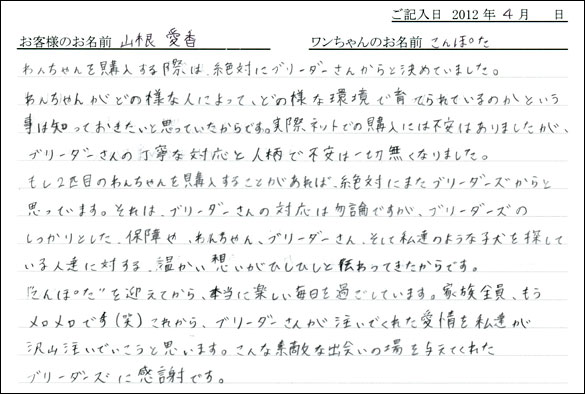 ご記入日 2012 年 4 月 日
お客様のお名前 山根 愛香 ワンちゃんのお名前 こんぽた
わんちゃんを購入する際は、絶対にブリーダーさんからと決めていました。
わんちゃんがどの様な人によって、どの様な環境で育てられているのかという
事は知っておきたいと思っていたからです。実際ネットでの購入には不安はありましたが、
ブリーダーさんの丁寧な対応と人柄で不安は一切無くなりました。
もし2匹目のわんちゃんを購入することがあれば、絶対にまたブリーダーズからと
思っています。それは、ブリーダーさんの対応は勿論ですが、ブリーダーズの
しっかりとした、保障や、わんちゃん、ブリーダーさん、そして私達のような子犬を探して
いる人達に対する、温かい想いがひしひしと伝わってきたからです。
"こんぽた"を迎えてから、本当に楽しい毎日を過ごしています。家族全員、もう
メロメロです(笑)これから、ブリーダーさんが注いでくれた愛情を私達が
沢山注いでいこうと思います。こんな素敵な出会いの場を与えてくれた
ブリーダーズに感謝です。